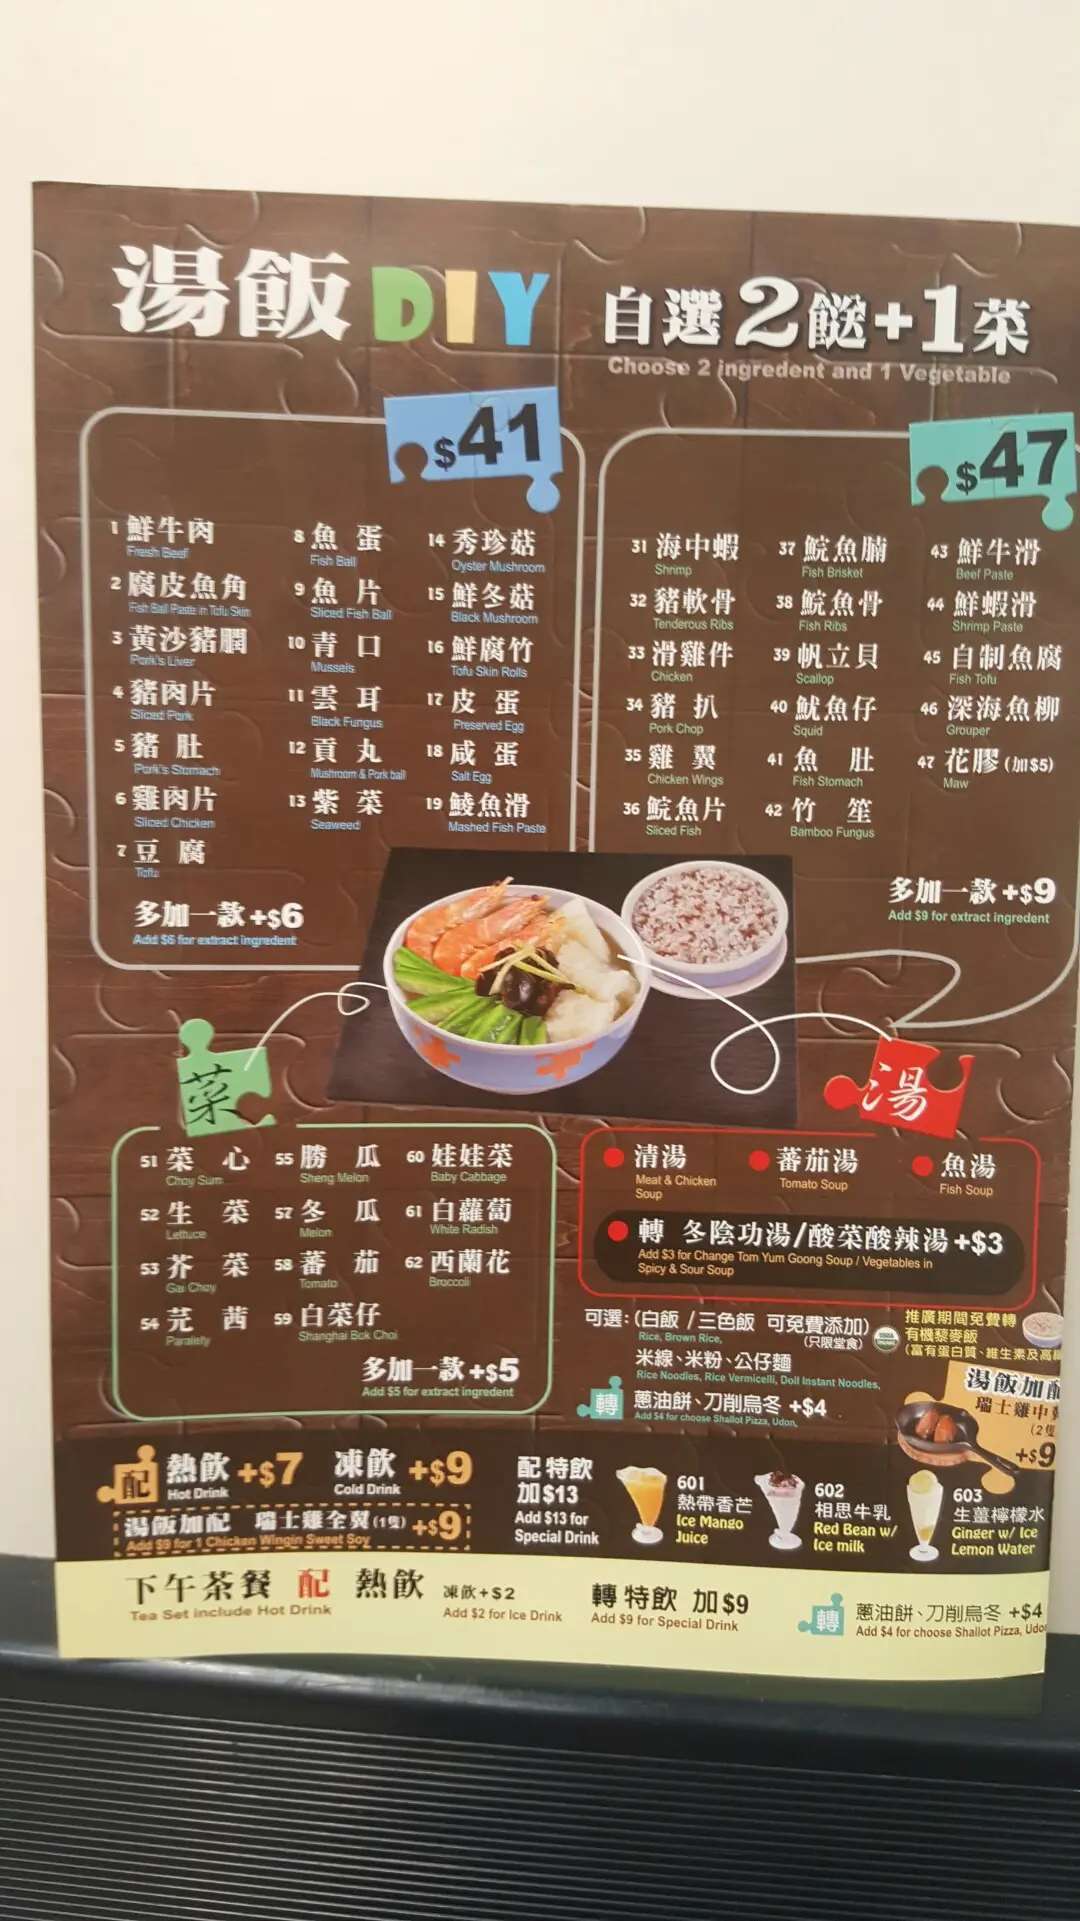 湯飯 DIY
自選2餸+1菜
Choose 2 ingredent and 1 Vegetable
$41
1 鮮牛肉
Fresh Beef
2 腐皮魚角
Fish Ball Paste in Tofu Skin
3 黃沙豬膶
Pork's Liver
4 豬肉片
Sliced Pork
5 豬肚
Pork's Stomach
6 雞肉片
Sliced Chicken
7 豆腐
Tofu
8 魚蛋
Fish Ball
9 魚片
Sliced Fish Ball
10 青口
Mussels
11 雲耳
Black Fungus
12 貢丸
Mushroom & Pork ball
13 紫菜
Seaweed
14 秀珍菇
Oyster Mushroom
15 鮮冬菇
Black Mushroom
16 鮮腐竹
Tofu Skin Rolls
17 皮蛋
Preserved Egg
18 咸蛋
Salt Egg
19 鯪魚滑
Mashed Fish Paste
多加一款+$6
Add $6 for extract ingredent
$47
31 海中蝦
Shrimp
32 豬軟骨
Tenderous Ribs
33 滑雞件
Chicken
34 豬扒
Pork Chop
35 雞翼
Chicken Wings
36 鯇魚片
Sliced Fish
37 鯇魚腩
Fish Brisket
38 鯇魚骨
Fish Ribs
39 帆立貝
Scallop
40 魷魚仔
Squid
41 魚肚
Fish Stomach
42 竹笙
Bamboo Fungus
43 鮮牛滑
Beef Paste
44 鮮蝦滑
Shrimp Paste
45 自制魚腐
Fish Tofu
46 深海魚柳
Grouper
47 花膠(加$5)
Maw
多加一款+$9
Add $9 for extract ingredent
菜
51 菜心
Choy Sum
52 生菜
Lettuce
53 芥菜
Gai Choy
54 芫茜
Paralely
55 勝瓜
Sheng Melon
57 冬瓜
Melon
58 蕃茄
Tomato
59 白菜仔
Shanghai Bok Choi
60 娃娃菜
Baby Cabbage
61 白蘿蔔
White Radish
62 西蘭花
Broccoli
多加一款+$5
Add $5 for extract ingredent
湯
清湯
Meat & Chicken
Soup
蕃茄湯
Tomato Soup
魚湯
Fish Soup
轉 冬陰功湯/酸菜酸辣湯+$3
Add $3 for Change Tom Yum Goong Soup / Vegetables in
Spicy & Sour Soup
可選:(白飯 /三色飯 可免費添加)
(只限堂食)
Rice, Brown Rice,
米線、米粉、公仔麵
Rice Noodles, Rice Vermicelli, Doll Instant Noodles,
轉 蔥油餅、刀削烏冬 +$4
Add $4 for choose Shallot Pizza, Udon,
USDA
ORGANIC
推廣期間免費轉
有機藜麥飯
(富有蛋白質、維生素及高纖
湯飯加配
瑞士雞中翼
(2隻
+$9
配 熱飲 +$7
Hot Drink
凍飲 +$9
Cold Drink
湯飯加配 瑞士雞全翼(1隻)+$9
Add $9 for 1 Chicken Wingin Sweet Soy
配特飲
加$13
Add $13 for
Special Drink
601
熱帶香芒
Ice Mango
Juice
602
相思牛乳
Red Bean w/
Ice milk
603
生薑檸檬水
Ginger w/ Ice
Lemon Water
下午茶餐 配 熱飲
Tea Set include Hot Drink
凍飲+$2
Add $2 for Ice Drink
轉特飲 加$9
Add $9 for Special Drink
轉 蔥油餅、刀削烏冬 +$4
Add $4 for choose Shallot Pizza, Udon